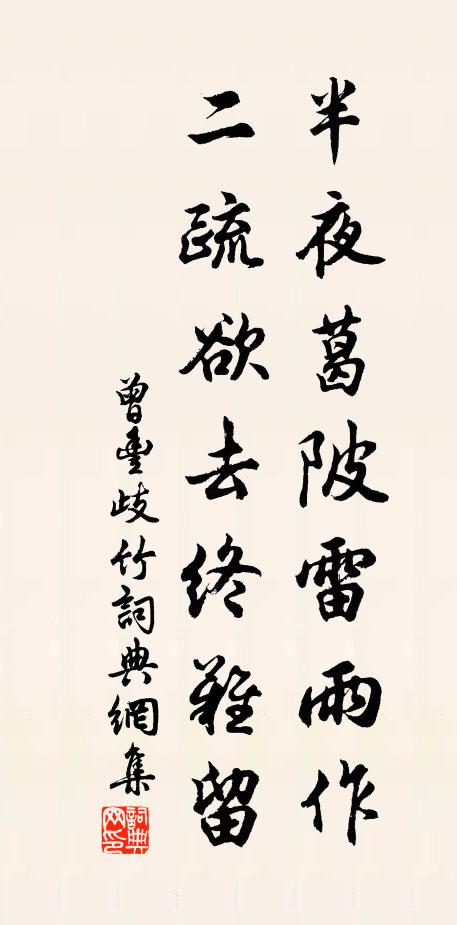 半夜葛陂雷雨作
二疏欲去終難留
曾豊歧竹詞典網集
詞典網印